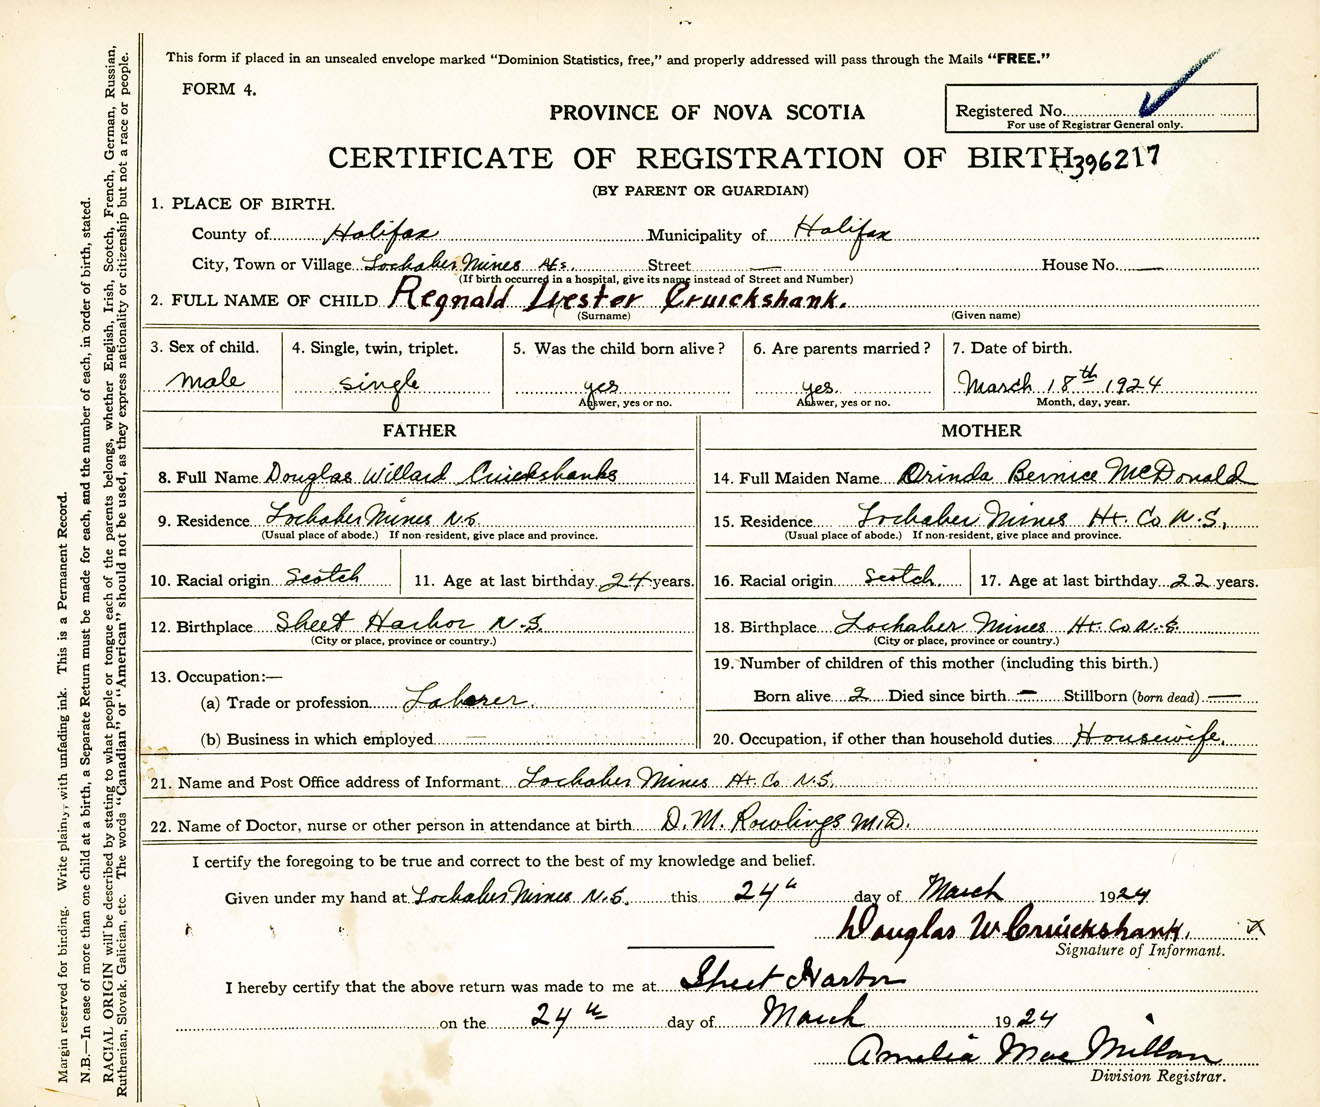 This form if placed in an unsealed envelope marked "Dominion Statistics, free," and properly addressed will pass through the Mails "FREE."
FORM 4.
PROVINCE OF NOVA SCOTIA
Registered No.
For use of Registrar General only.
CERTIFICATE OF REGISTRATION OF BIRTH 396217
(BY PARENT OR GUARDIAN)
1. PLACE OF BIRTH.
County of Halifax Municipality of Halifax
City, Town or Village Lochaber Mines Street — House No. —
(If birth occurred in a hospital, give its name instead of Street and Number)
2. FULL NAME OF CHILD Regnald Lester Cruickshank.
(Surname) (Given name)
3. Sex of child. 4. Single, twin, triplet. 5. Was the child born alive? 6. Are parents married? 7. Date of birth.
male single yes yes. March 18th 1924
Answer, yes or no. Answer, yes or no. Month, day, year.
FATHER MOTHER
8. Full Name Douglas Willard Cruickshanks 14. Full Maiden Name Orinda Bernice McDonald
9. Residence Lochaber Mines N.S. 15. Residence Lochaber Mines Hx. Co N.S.
(Usual place of abode.) If non-resident, give place and province. (Usual place of abode.) If non-resident, give place and province.
10. Racial origin Scotch 11. Age at last birthday 24 years. 16. Racial origin Scotch. 17. Age at last birthday 22 years.
12. Birthplace Sheet Harbor N.S. 18. Birthplace Lochaber Mines Hx. Co N.S.
(City or place, province or country.) (City or place, province or country.)
19. Number of children of this mother (including this birth.)
13. Occupation:—
(a) Trade or profession Laborer. Born alive 2 Died since birth — Stillborn (born dead) —
(b) Business in which employed — 20. Occupation, if other than household duties Housewife.
21. Name and Post Office address of Informant Lochaber Mines Hx. Co N.S.
22. Name of Doctor, nurse or other person in attendance at birth D. M. Rowlings M.D.
I certify the foregoing to be true and correct to the best of my knowledge and belief.
Given under my hand at Lochaber Mines N.S. this 24th day of March 1924
Douglas W. Cruickshank. x
Signature of Informant.
I hereby certify that the above return was made to me at Sheet Harbor
on the 24th day of March 1924
Amelia MacMillan
Division Registrar.
Margin reserved for binding. Write plainly, with unfading ink. This is a Permanent Record.
N.B.—In case of more than one child at a birth, a Separate Return must be made for each, and the number of each, in order of birth, stated.
RACIAL ORIGIN will be described by stating to what people or tongue each of the parents belongs, whether English, Irish, Scotch, French, German, Russian,
Ruthenian, Slovak, Galician, etc. The words "Canadian" or "American" should not be used, as they express nationality or citizenship but not a race or people.